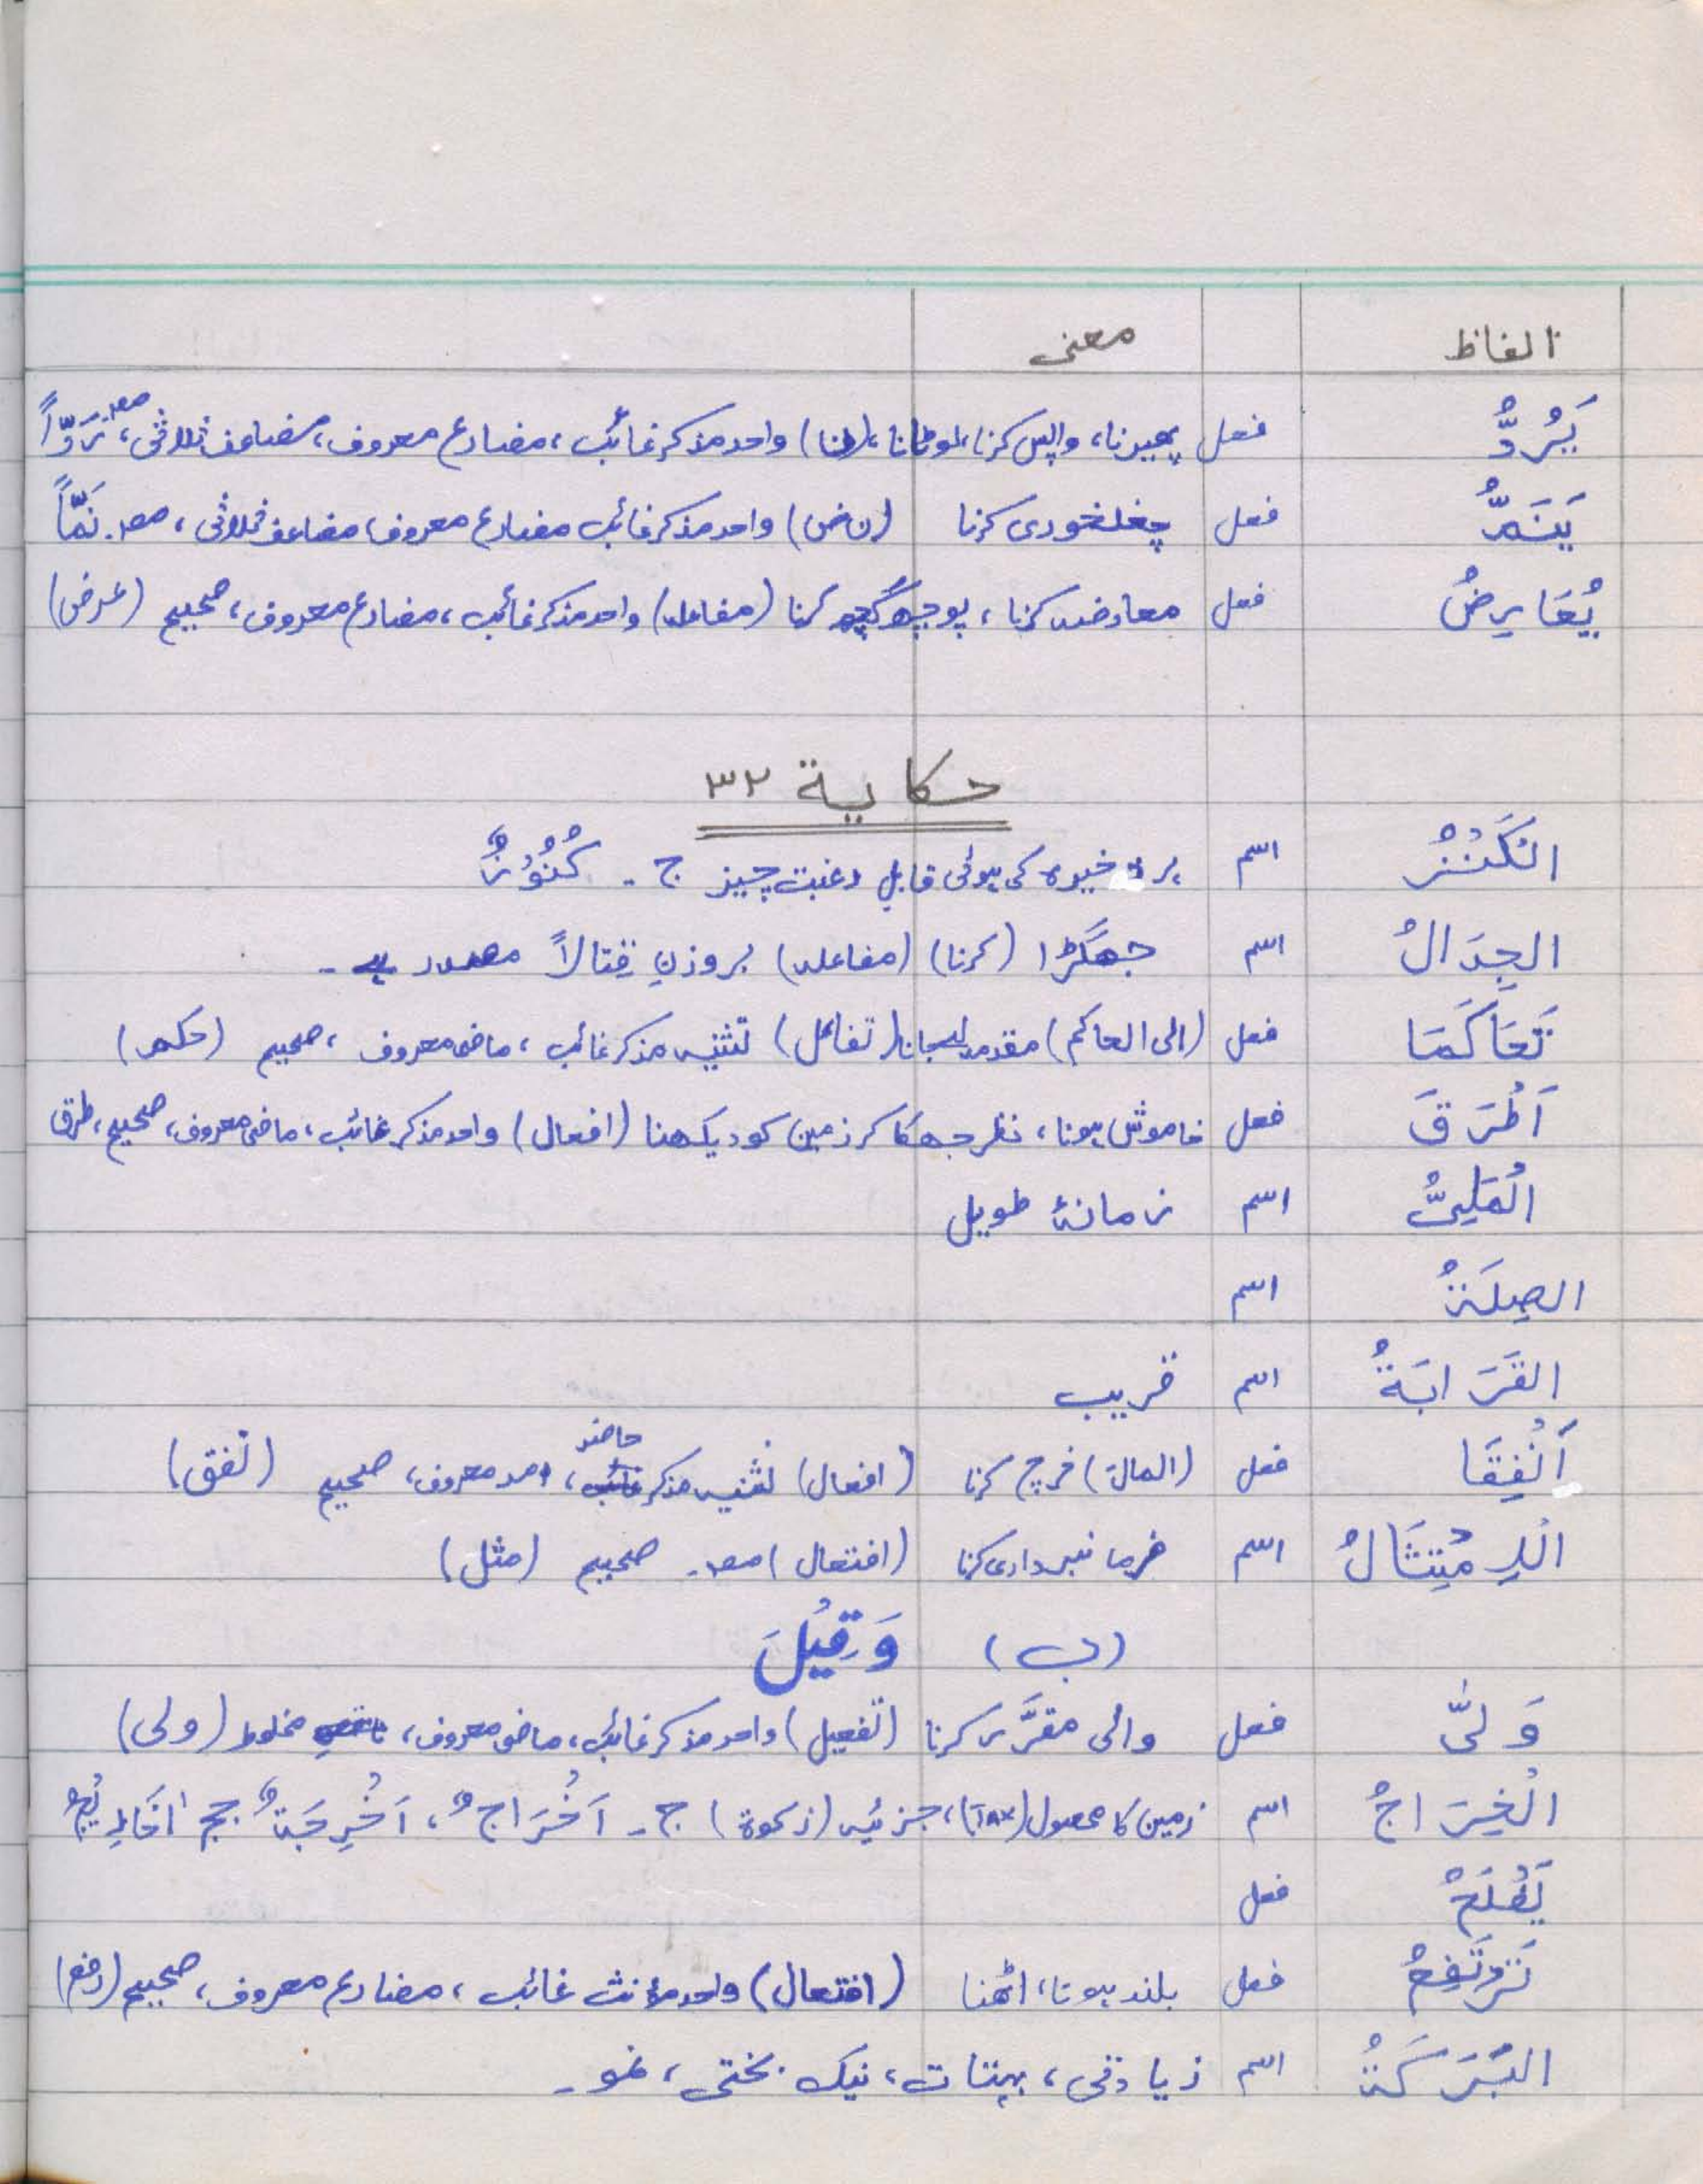 الفاظ معنی
یَرُدُّ فعل پھیرنا، واپس کرنا، لوٹانا، (ن) واحد مذکر غائب، مضارع معروف، مضاعف ثلاثی، مصد. رَدّاً
یَنَمُّ فعل چغلخوری کرنا (ن ض) واحد مذکر غائب مضارع معروف، مضاعف ثلاثی، مصد. نَمّاً
یُعَارِضُ فعل معارضہ کرنا، پوچھ گچھ کرنا (مفاعلہ) واحد مذکر غائب، مضارع معروف، صحیح (عرض)
حکایة ٣٢
الْکَنْزُ اسم ہر ذخیرہ کی ہوئی قابلِ رغبت چیز ج - کُنُوْزٌ
الجِدَالُ اسم جھگڑا (کرنا) (مفاعلہ) بروزنِ قِتَالاً مصدر ہے -
تَحَاکَمَا فعل (الی الحاکم) مقدمہ لیجانا (تفاعل) تثنیہ مذکر غائب، ماضی معروف، صحیح (حکم)
اَطْرَقَ فعل خاموش ہونا، نظر جھکا کر زمین کو دیکھنا (افعال) واحد مذکر غائب، ماضی معروف، صحیح، طرق
الْمَلِیُّ اسم زمانۂ طویل
الصِلَةُ اسم
القَرَابَةُ اسم قریب
اَنْفِقَا فعل (المالَ) خرچ کرنا (افعال) تثنیہ مذکر حاضر، امر معروف، صحیح (نفق)
الْاِمْتِثَالُ اسم فرمانبرداری کرنا (افتعال) مصد. صحیح (مثل)
(ب) وَقِیْلَ
وَلّٰی فعل والی مقرَّر کرنا (تفعیل) واحد مذکر غائب، ماضی معروف، مخلوط (ولی)
الْخِرَاجُ اسم زمین کا محصول (TAX)، جزئیہ (زکوة) ج - اَخْرَاجٌ، اَخْرِجَةٌ جج اَخَارِیْجُ
فعل
تَرْتَفِعُ فعل بلند ہونا، اٹھنا (افتعال) واحد مؤنث غائب، مضارع معروف، صحیح (رفع)
البَرَکَةُ اسم زیادتی، بہتات، نیک بختی، نمو -